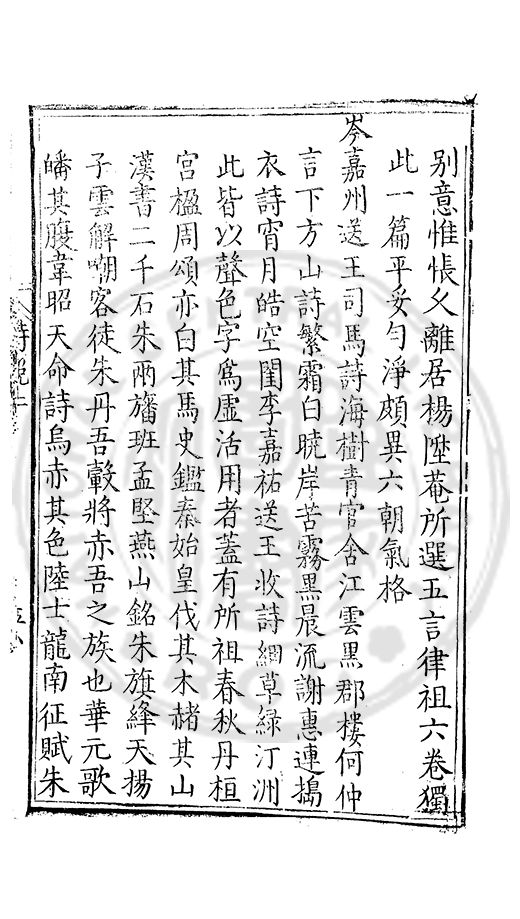 別意惟悵久離居楊陞菴所選五言律祖六卷獨
此一篇平妥勻淨頗異六朝氣格
岑嘉州送王司馬詩海樹青官舍江雲黑郡樓何仲
言下方山詩繁霜白曉岸苦霧黑晨流謝惠連搗
衣詩宵月皓空閨李嘉祐送王牧詩綢草綠汀洲
此皆以聲色字爲虛活用者蓋有所祖春秋丹桓
宮楹周頌亦白其馬史鑑秦始皇伐其木赭其山
漢書二千石朱兩旛班孟堅燕山銘朱旗絳天揚
子雲解嘲客徒朱丹吾轂將赤吾之族也華元歌
皤其腹韋昭天命詩烏赤其色陸士龍南征賦朱